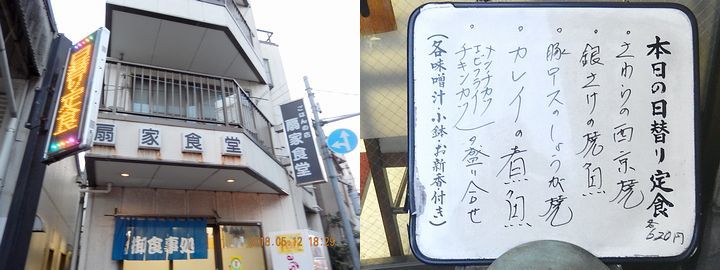 日替り定食
扇家食堂
ごはん処
扇家食堂
御食事処
2018.05.12 18:29
本日の日替り定食
各520円
・さわらの西京焼
・銀さけの焼魚
・豚ロースのしょうが焼
・カレイの煮魚
・メンチカツ
エビフライ
チキンカツ
の盛り合せ
(各味噌汁・小鉢・お新香付き)